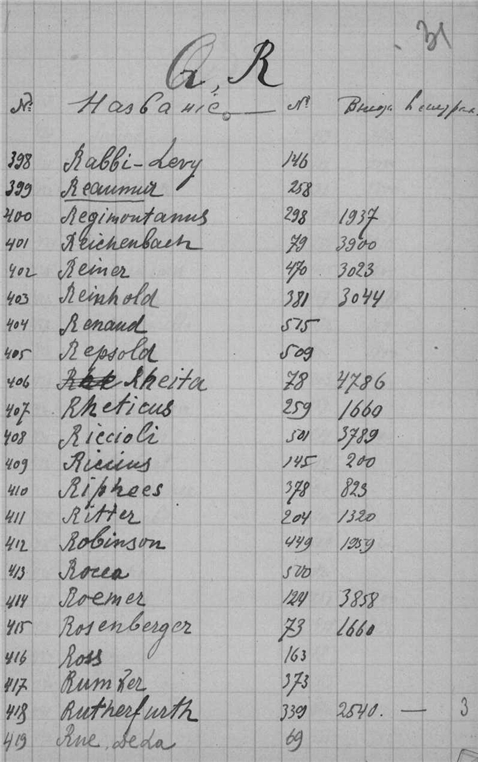 31
Q, R
№ Названіе № Высота
398 Rabbi-Levy 146
399 Reaumur 258
400 Regimontanus 298 1937
401 Reichenbach 79 3900
402 Reiner 470 3023
403 Reinhold 381 3044
404 Renaud 515
405 Repsold 509
406 Rheita 78 4786
407 Rheticus 259 1660
408 Riccioli 501 3789
409 Riccius 145 200
410 Riphees 378 823
411 Ritter 204 1320
412 Robinson 449 1959
413 Rocca 500
414 Roemer 124 3858
415 Rosenberger 73 1660
416 Ross 163
417 Rumker 373
418 Rutherfurth 339 2540. — 3
419 Rue, De La 69